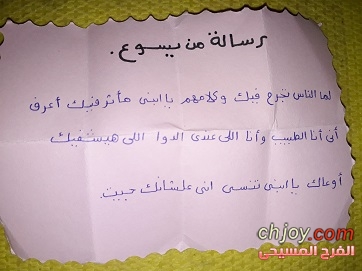 رسالة من يسوع.
لما الناس تجرح فيك وكلامهم يا ابنى مأثر فيك أعرف
أنى أنا الطبيب وأنا اللى عندى الدوا اللى هيشفيك
أوعاك يا ابنى تنسى انى علشانك جيت.
chjoy.com
الفرح المسيحى